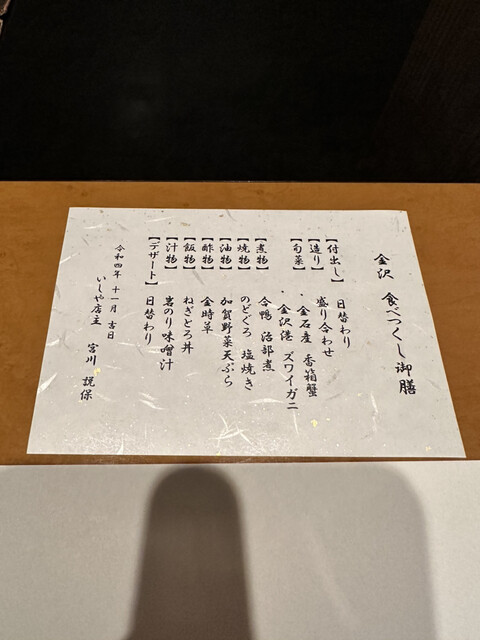 金沢 食べつくし御膳
【付出し】 日替わり
【造り】 盛り合わせ
【旬菜】 ・金石産 香箱蟹
・金沢港 ズワイガニ
【煮物】 合鴨 治部煮
【焼物】 のどぐろ 塩焼き
【油物】 加賀野菜天ぷら
【酢物】 金時草
【飯物】 ねぎとろ丼
【汁物】 岩のり味噌汁
【デザート】 日替わり
令和四年 十一月 吉日
いしや店主 宮川 説保